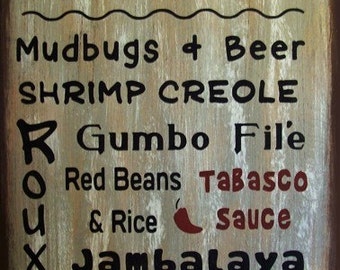 Mudbugs & Beer
SHRIMP CREOLE
Roux
Gumbo Filé
Red Beans
& Rice
Tabasco
Sauce
Jambalaya